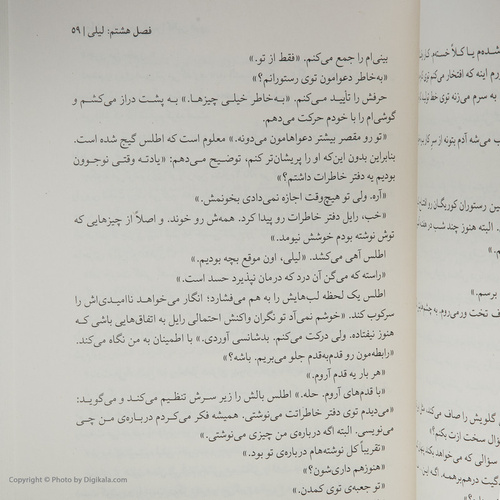 فصل هشتم: لیلی | ۵۹
بینی‌ام را جمع می‌کنم. «فقط از تو.»
«به‌خاطر دعوامون توی رستورانم؟»
حرفش را تأیید می‌کنم. «به‌خاطر خیلی چیزها.» به پشت دراز می‌کشم و
گوشی‌ام را با خودم حرکت می‌دهم.
«تو رو مقصر بیشتر دعواهامون می‌دونه.» معلوم است که اطلس گیج شده است.
بنابراین بدون این‌که او را پریشان‌تر کنم، توضیح می‌دهم: «یادته وقتی نوجوون
بودیم یه دفتر خاطرات داشتم؟»
«آره. ولی تو هیچ‌وقت اجازه نمی‌دادی بخونمش.»
«خب، رایل دفتر خاطرات رو پیدا کرد. همه‌ش رو خوند. و اصلاً از چیزهایی که
توش نوشته بودم خوشش نیومد.»
اطلس آهی می‌کشد. «لیلی، اون موقع بچه بودیم.»
«راسته که می‌گن آن درد که درمان نپذیرد حسد است.»
اطلس یک لحظه لب‌هایش را به هم می‌فشارد؛ انگار می‌خواهد ناامیدی‌اش را
سرکوب کند. «خوشم نمی‌آد تو نگران واکنش احتمالی رایل به اتفاق‌هایی باشی که
هنوز نیفتاده. ولی درکت می‌کنم. بدشانسی آوردی.» با اطمینان به من نگاه می‌کند.
«رابطه‌مون رو قدم‌به‌قدم جلو می‌بریم. باشه؟»
«هر بار یه قدم آروم.»
«با قدم‌های آروم. حله.» اطلس بالش را زیر سرش تنظیم می‌کند و می‌گوید:
«می‌دیدم توی دفتر خاطراتت می‌نوشتی. همیشه فکر می‌کردم درباره‌ی من چی
می‌نویسی. البته اگه درباره‌ی من چیزی می‌نوشتی.»
«تقریباً کل نوشته‌هام درباره‌ی تو بود.»
«هنوزهم داری‌شون؟»
«تو جعبه‌ی توی کمدن.»
Copyright © Photo by Digikala.com